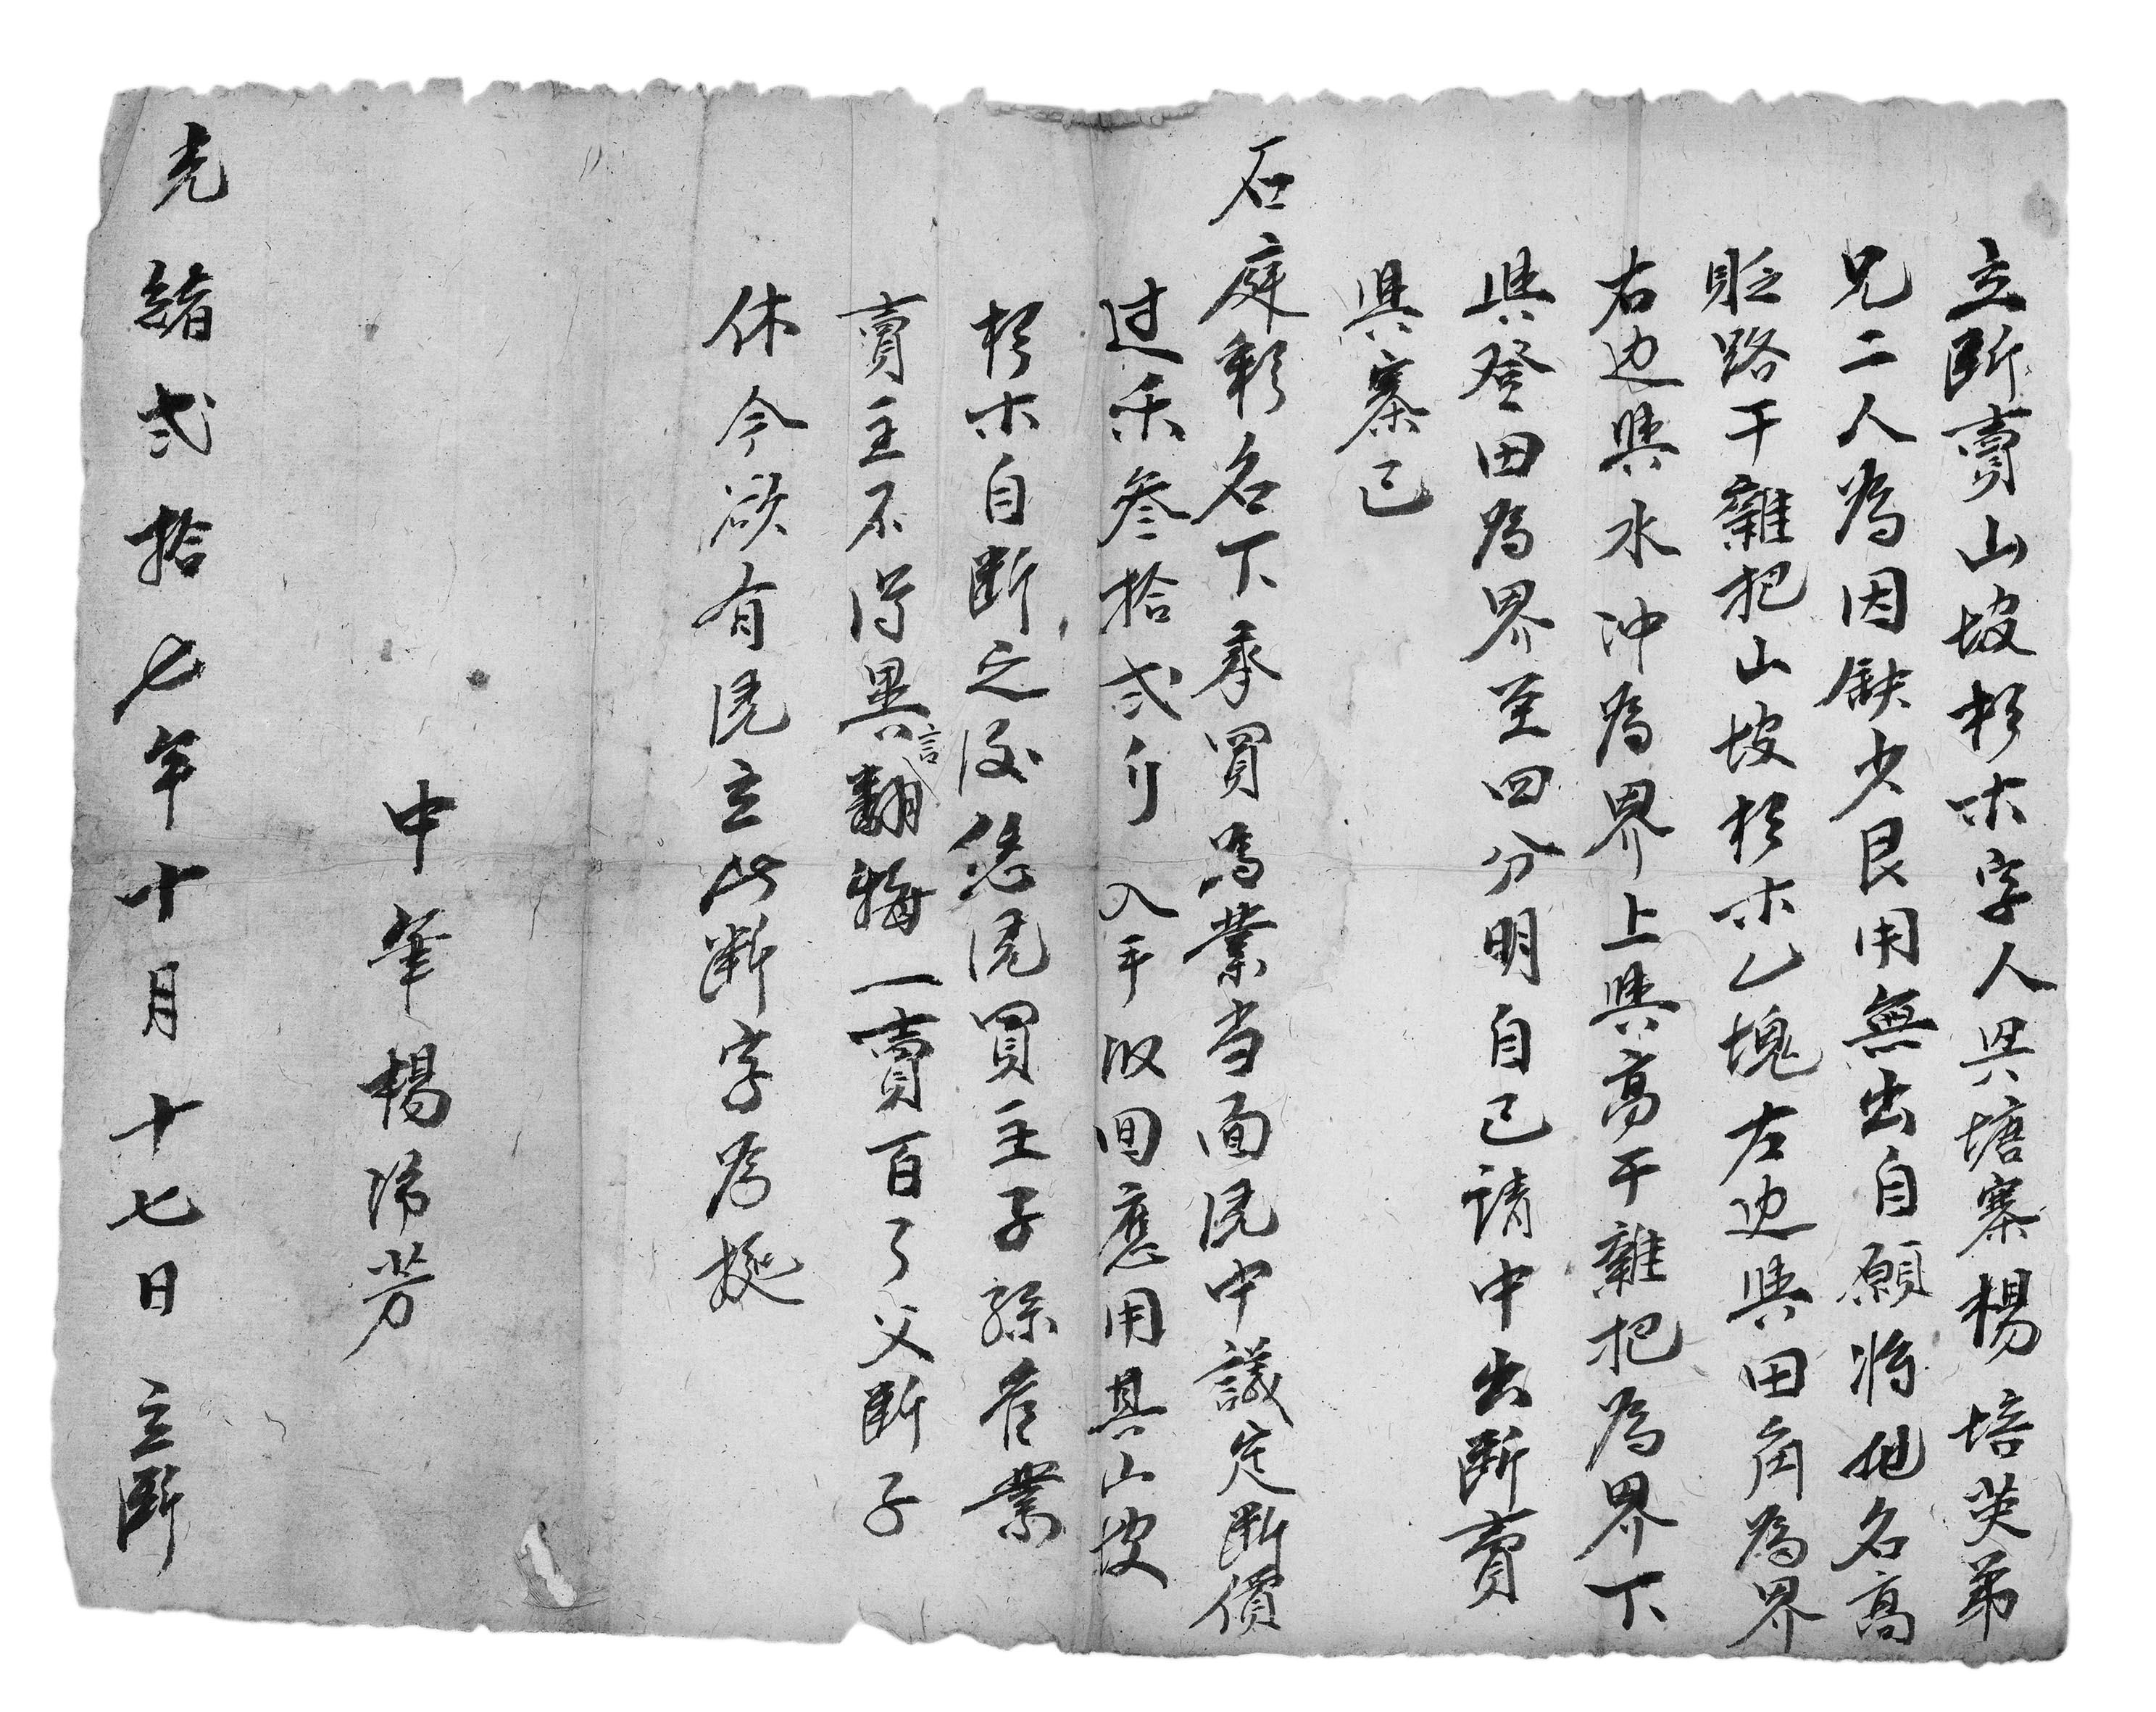 立断賣山坡杉木字人具塘寨楊培英弟
兄二人為因缺少艮用無出自願將地名高
貶路干難把山坡杉木乙塊左边與田角為界
右边與水冲為界上與高干難把為界下
與登田為界至四分明自己請中出断賣
與寨已
石庭彩名下承買為業当面凭中議定断價
过禾叁拾弍斤入手收回應用其山坡
杉木自断之後恁凭買主子孫管業
賣主不得異言翻悔一賣百了父断子
休今欲有凭立此断字為挺
中筆楊沛芳
光緒弍拾七年十月十七日立断